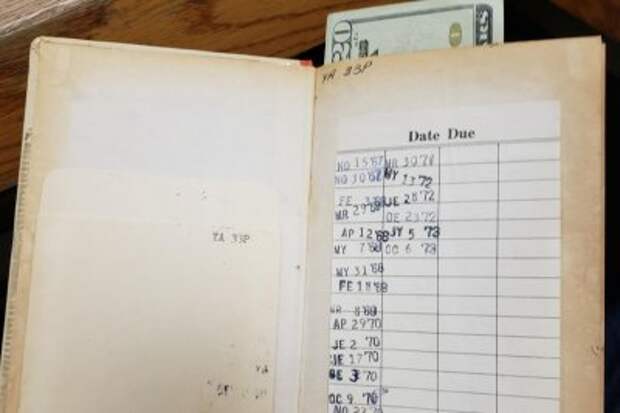 20
YA 33P
Date Due
NO 15'67 MR 30'72
NO 30'67 MY 23'72
FE JE 28'72
MR 29'68 DE 23'72
AP 12'68 JY 5 '73
MY 7'68 OC 6 '73
MY 31'68
FE 18'69
AP 29'70
JE 2 '70
JE 17'70
DE 3 '70
OC 9 '70
YA 33P